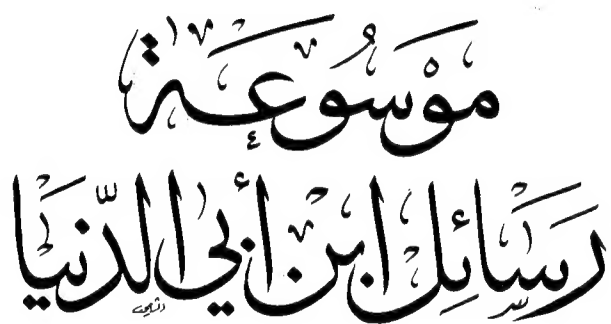 موسوعة
رسائل ابن أبي الدنيا